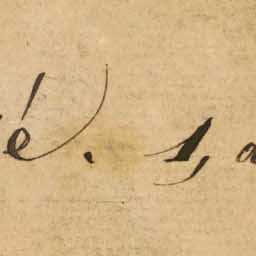 é. 1, a